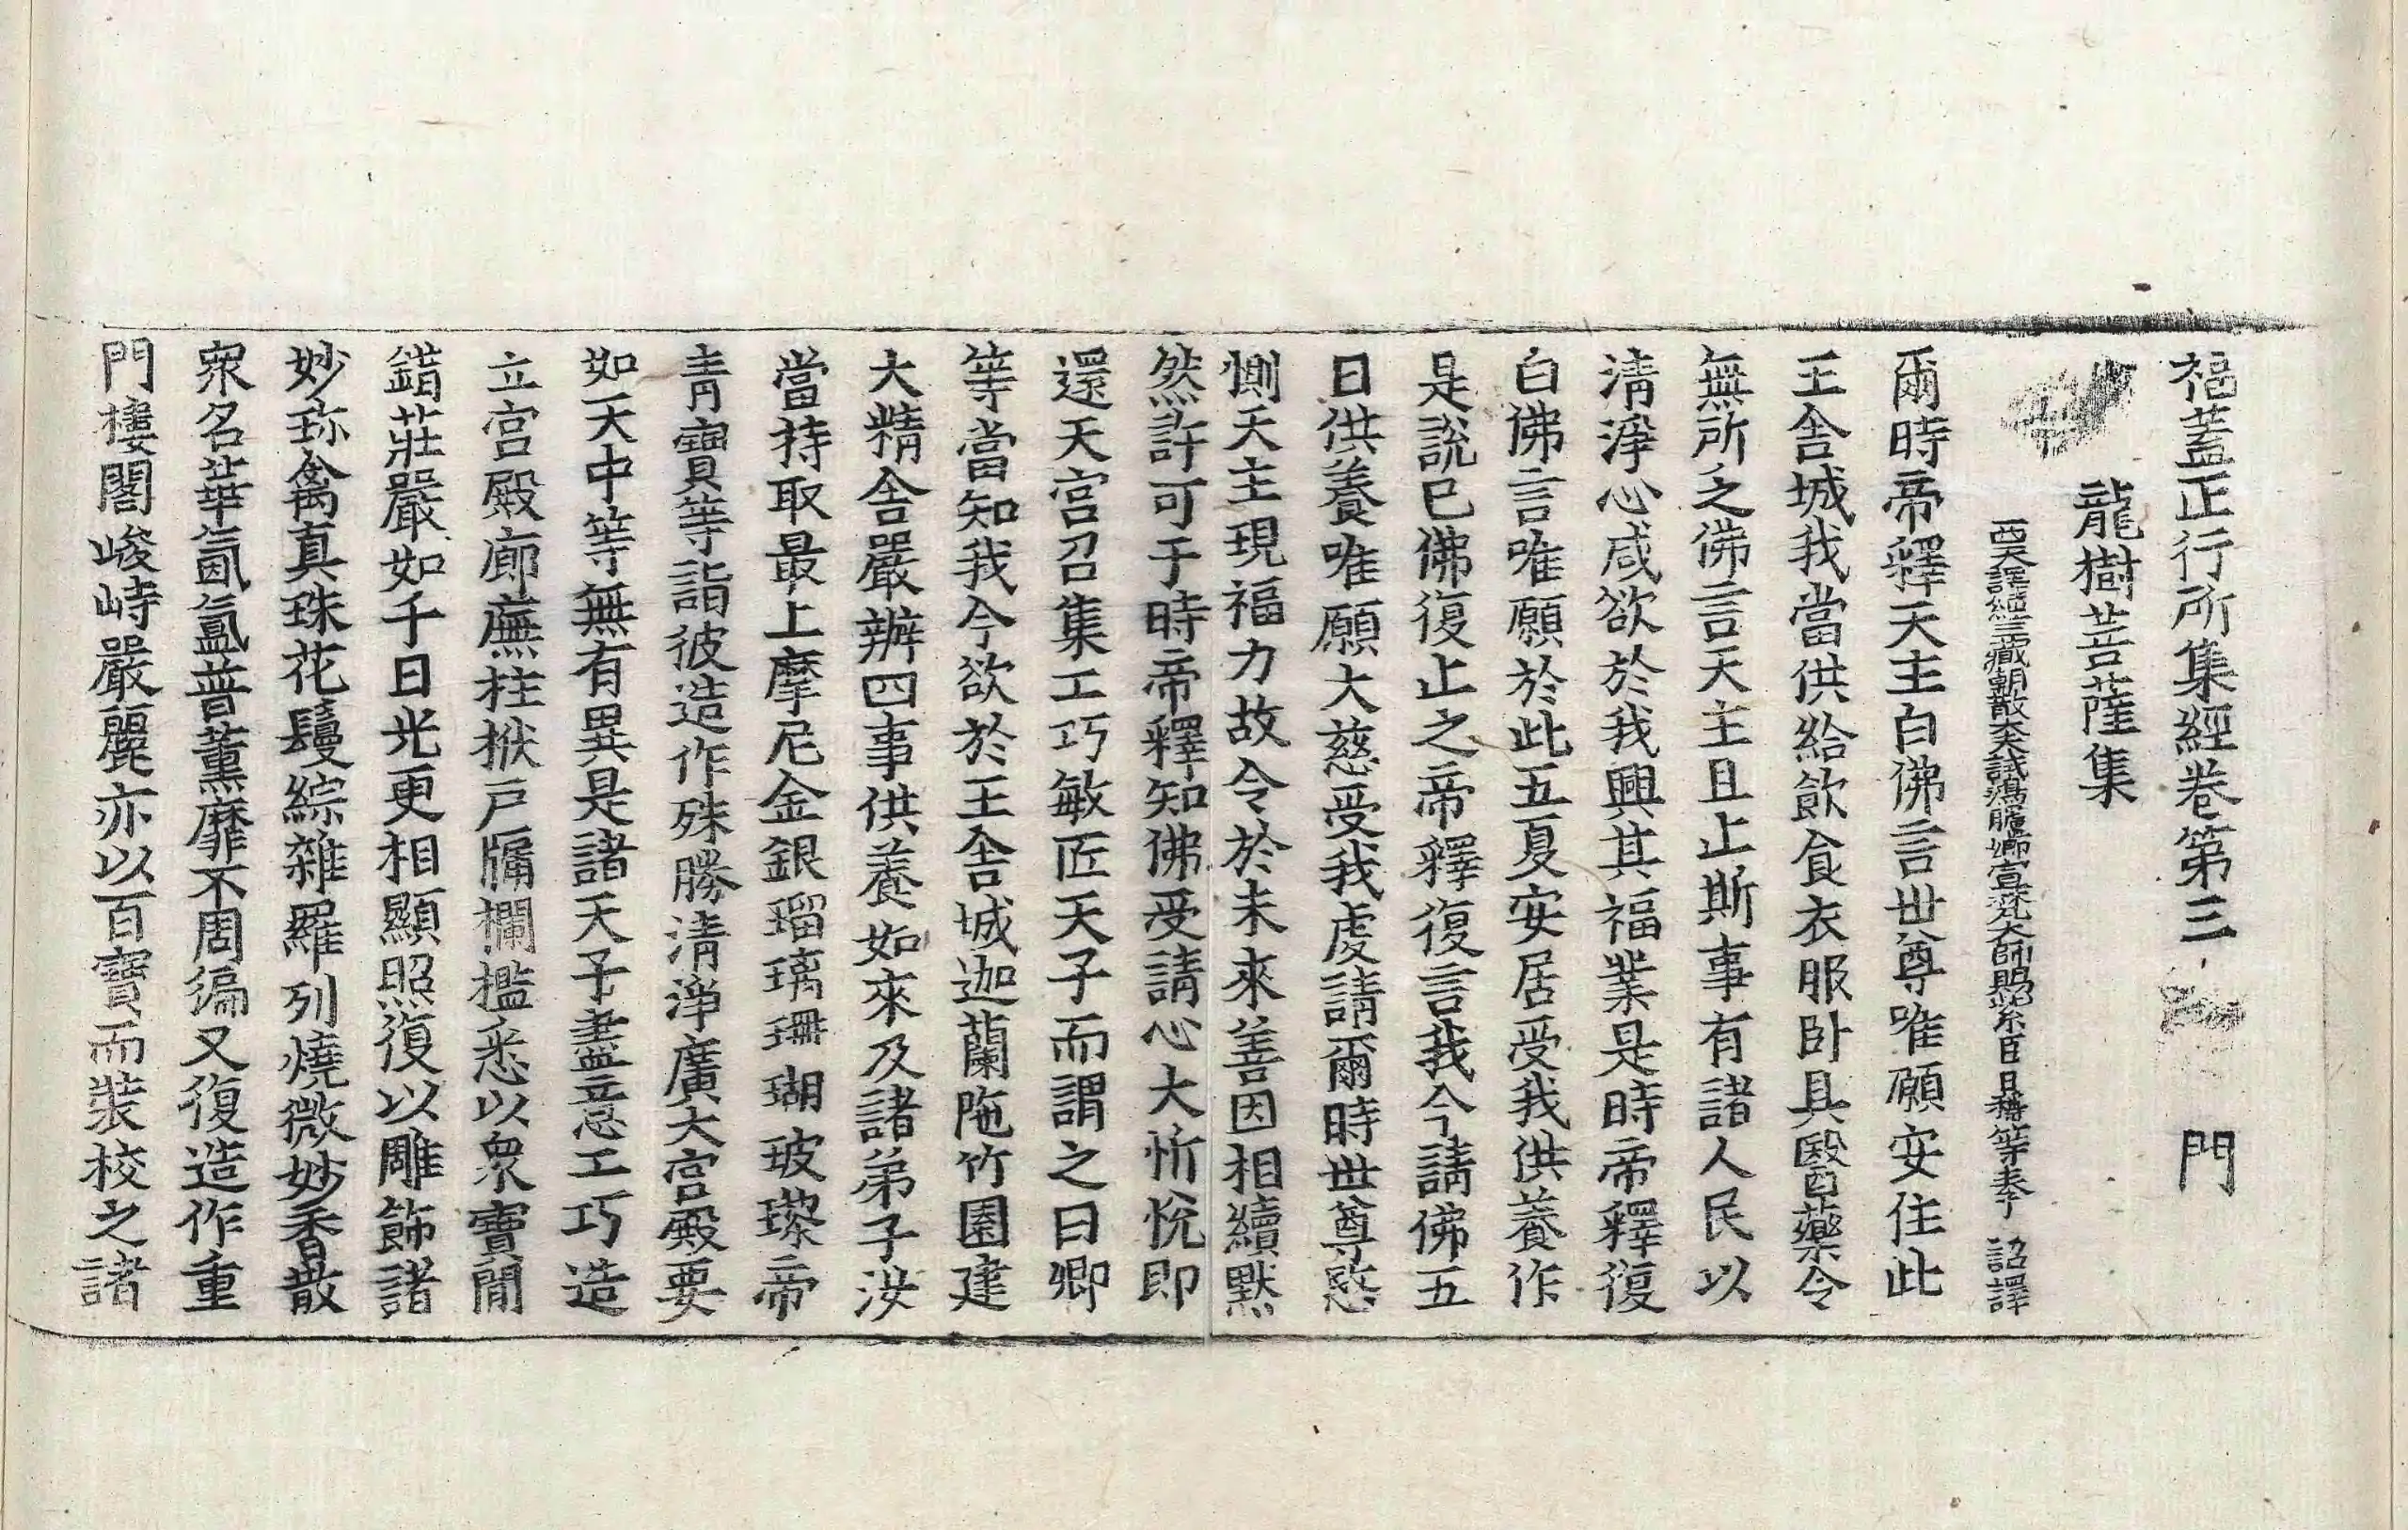 福蓋正行所集經卷第三 門
龍樹菩薩集
西天譯經三藏朝散大夫試鴻臚卿宣梵大師賜紫臣日稱等奉 詔譯
爾時帝釋天主白佛言世尊唯願安住此
王舍城我當供給飲食衣服卧具醫藥令
無所之佛言天主且止斯事有諸人民以
清淨心咸欲於我興其福業是時帝釋復
白佛言唯願於此五夏安居受我供養作
是說已佛復止之帝釋復言我今請佛五
日供養唯願大慈受我虔請爾時世尊愍
惻天主現福力故令於未來善因相續默
然許可于時帝釋知佛受請心大忻悅即
還天宮召集工巧敏匠天子而謂之曰卿
等當知我今欲於王舍城迦蘭陁竹園建
大精舍嚴辦四事供養如來及諸弟子汝
當持取最上摩尼金銀瑠璃珊瑚玻瓈帝
青寶等詣彼造作殊勝清淨廣大宮殿要
如天中等無有異是諸天子盡意工巧造
立宮殿廊廡柱栿戶牖欄檻悉以衆寶閒
錯莊嚴如千日光更相顯照復以雕飾諸
妙珎禽真珠花鬘綜雜羅列燒微妙香散
衆名華氤氳普薰靡不周徧又復造作重
門樓閣峻峙嚴麗亦以百寶而裝校之諸